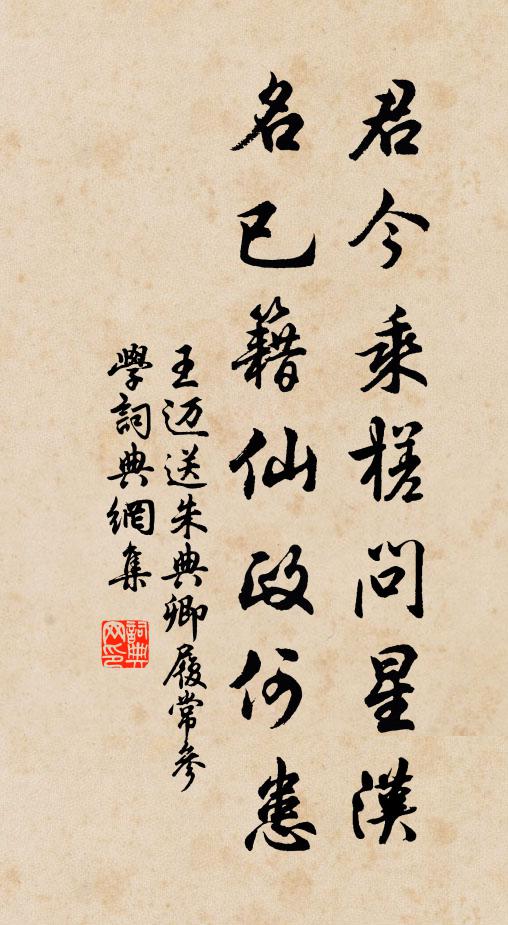 君今乘槎問星漢
名已籍仙政何患
王迈送朱典卿履常參
學詞典網集
詞典網印